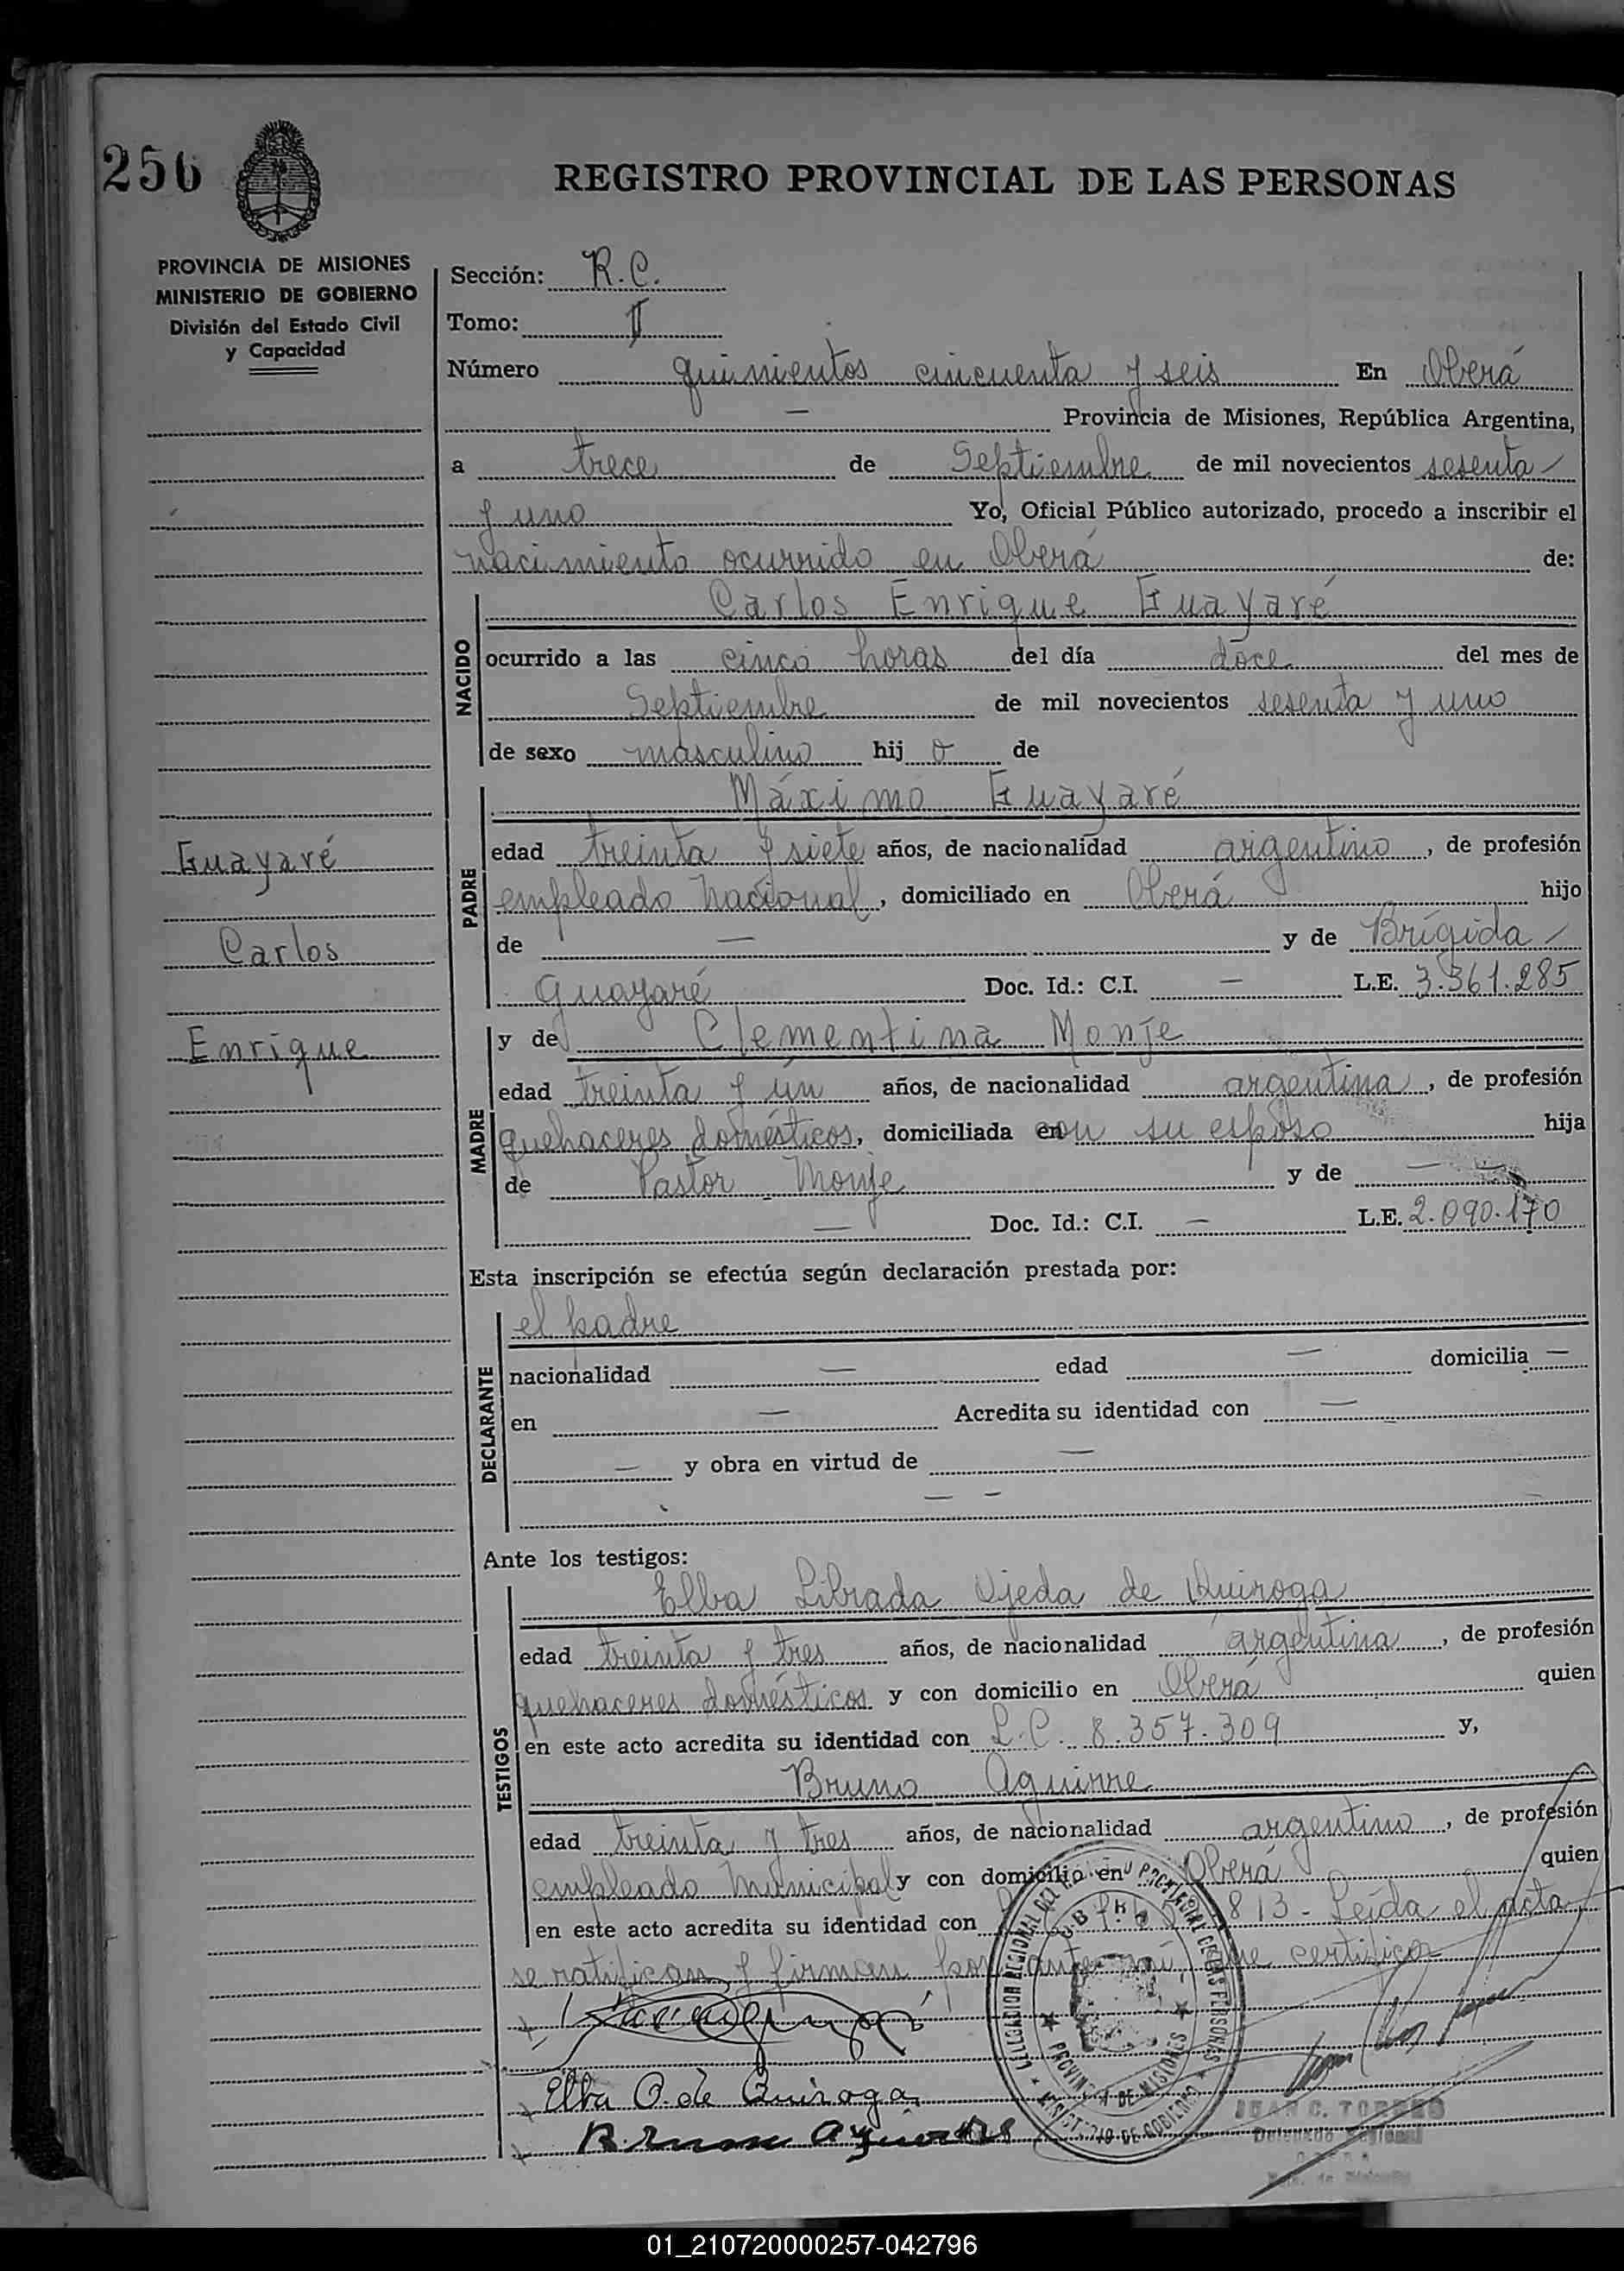 256
REGISTRO PROVINCIAL DE LAS PERSONAS
PROVINCIA DE MISIONES
MINISTERIO DE GOBIERNO
División del Estado Civil
y Capacidad
Sección: R.C.
Tomo: II
Número quinientos cincuenta y seis En Oberá
— Provincia de Misiones, República Argentina,
a trece de Septiembre de mil novecientos sesenta
y uno Yo, Oficial Público autorizado, procedo a inscribir el
nacimiento ocurrido en Oberá de:
NACIDO
Carlos Enrique Guayaré
ocurrido a las cinco horas del día doce del mes de
Septiembre de mil novecientos sesenta y uno
de sexo masculino hij o de
PADRE
Máximo Guayaré
edad treinta y siete años, de nacionalidad argentino, de profesión
empleado Nacional, domiciliado en Oberá hijo
de — y de Brígida
Guayaré Doc. Id.: C.I. — L.E. 3.361.285
Guayaré
Carlos
Enrique
MADRE
y de Clementina Monje
edad treinta y un años, de nacionalidad argentina, de profesión
quehaceres domésticos, domiciliada en con su esposo hija
de Pastor Monje y de — —
— Doc. Id.: C.I. — L.E. 2.090.170
Esta inscripción se efectúa según declaración prestada por:
DECLARANTE
el padre
nacionalidad — edad — domicilia —
en — Acredita su identidad con —
— y obra en virtud de —
— —
Ante los testigos:
TESTIGOS
Elba Librada Ojeda de Quiroga
edad treinta y tres años, de nacionalidad argentina, de profesión
quehaceres domésticos y con domicilio en Oberá quien
en este acto acredita su identidad con L.C. 8.357.309 y,
Bruno Aguirre
edad treinta y tres años, de nacionalidad argentino, de profesión
empleado Municipal y con domicilio en Oberá quien
en este acto acredita su identidad con 813 - Leída el acta,
se ratifican y firman por ante mí que certifico
Elba O. de Quiroga
Bruno Aguirre
PROVINCIA DE MISIONES
MINISTERIO DE GOBIERNO
JUAN C. TORRES
Delegado Regional
01_210720000257-042796